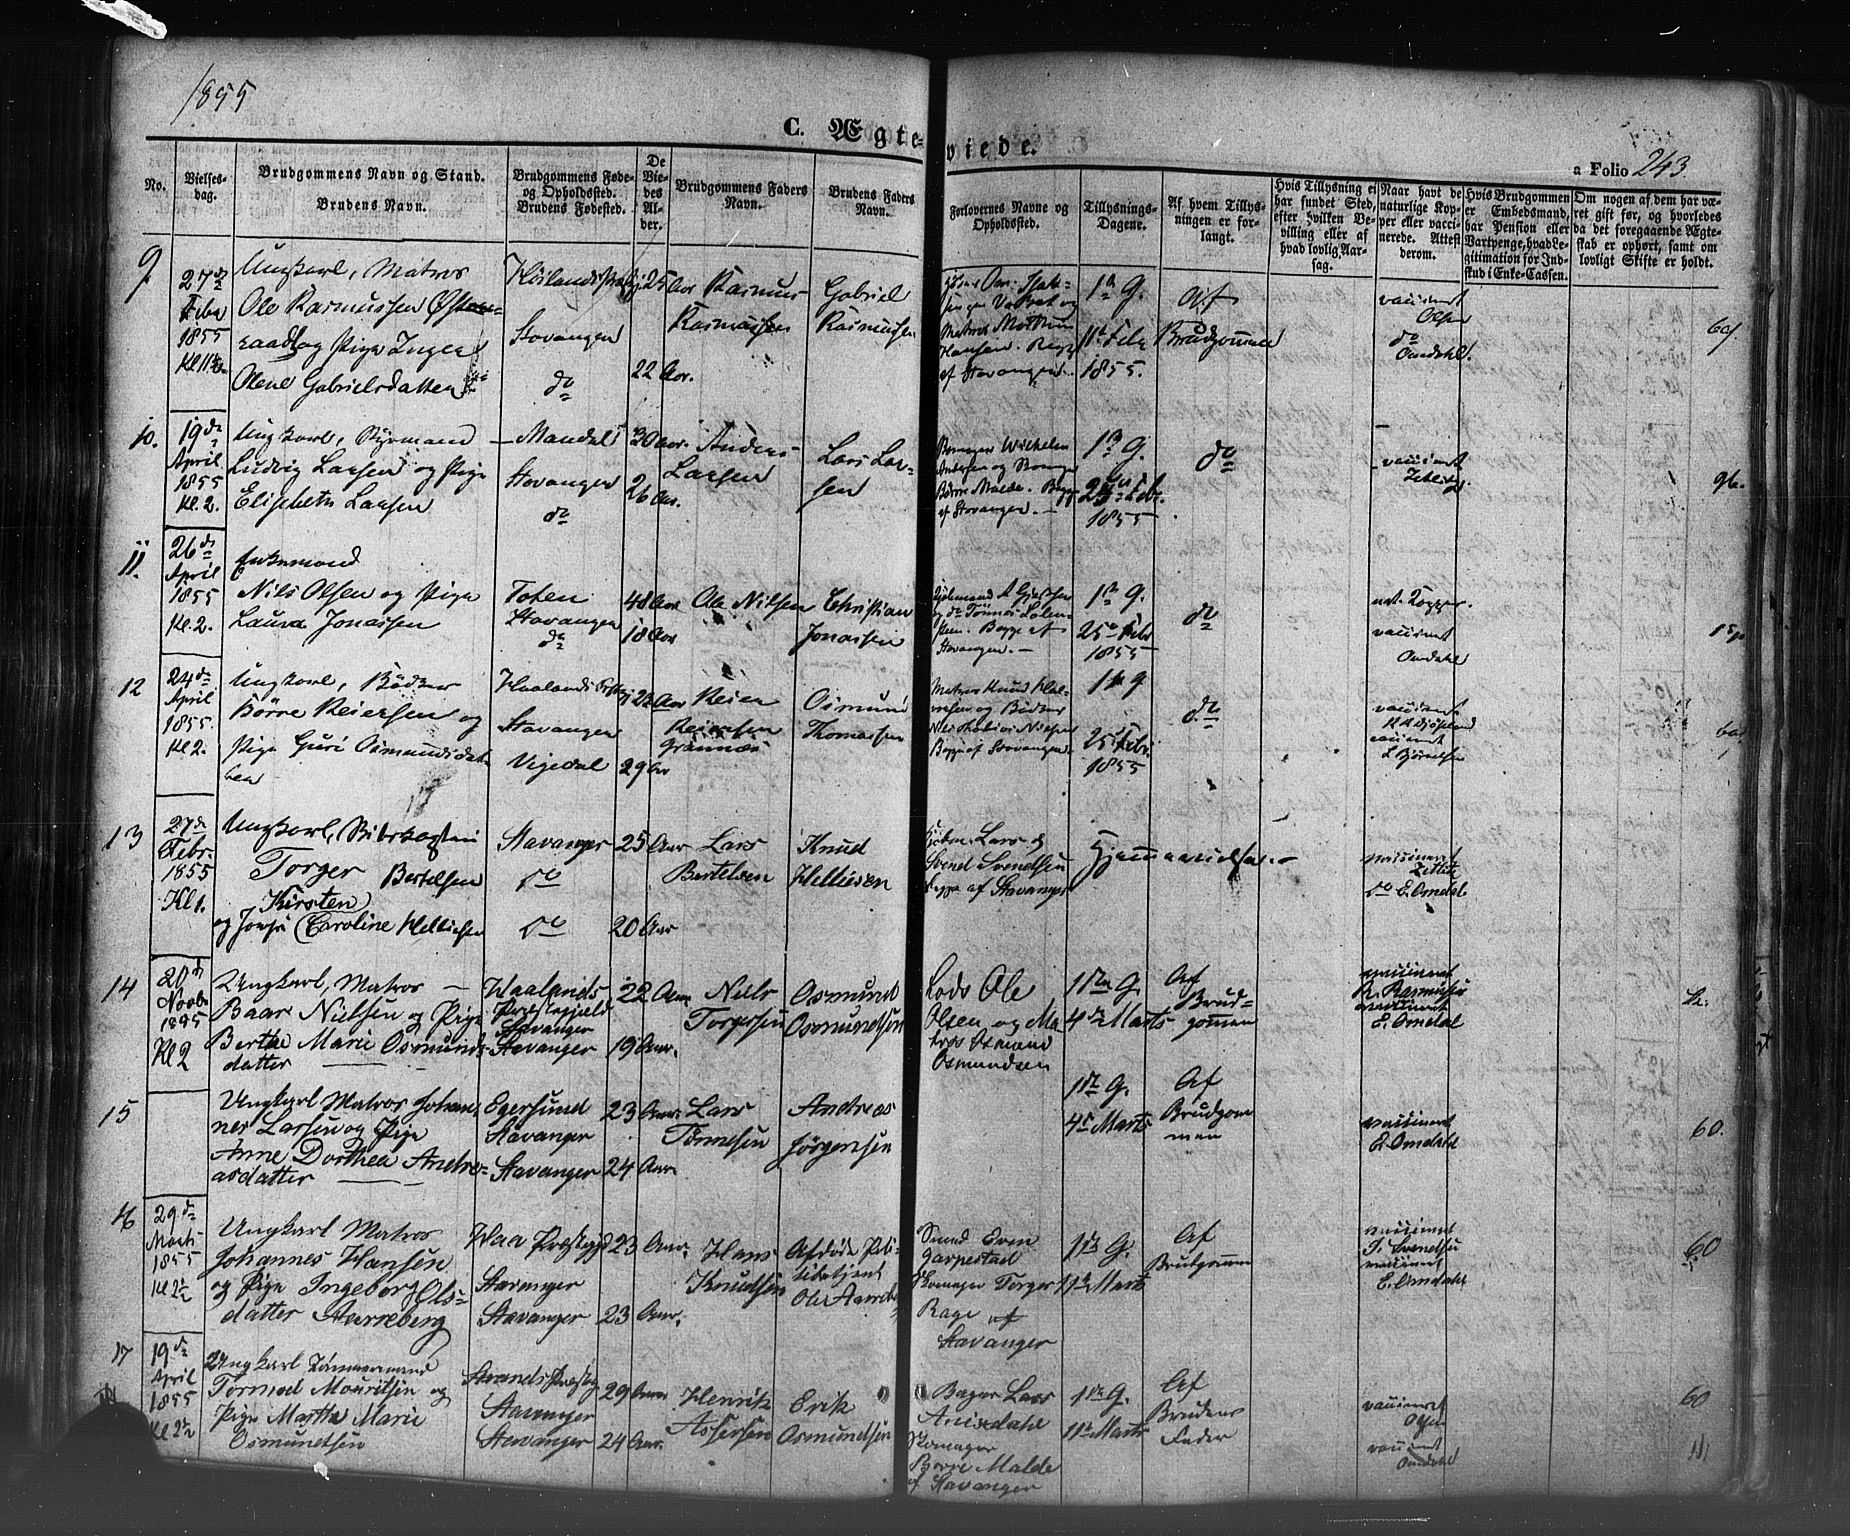 1855
C. Ægte-
viede.
a Folio 243
No.
Vielses-
dag.
Brudgommens Navn og Stand.
Brudens Navn.
Brudgommens Føde-
og Opholdssted.
Brudens Fødested.
De
Vie-
des
Al-
der.
Brudgommens Faders
Navn.
Brudens Faders
Navn.
Forlovernes Navne og
Opholdssted.
Tillysnings-
Dagene.
Af hvem Tillys-
ningen er for-
langt.
Hvis Tillysning ei
har fundet Sted,
efter hvilken Be-
villing eller af
hvad lovlig Aar-
sag.
Naar havt de
naturlige Kop-
per eller vacci-
nerede. Attest
derom.
Hvis Brudgommen
er Embedsmand,
har Pension eller
Vartpenge, hvad Le-
gitimation for Ind-
skud i Enke-Cassen.
Om nogen af dem har væ-
ret gift før, og hvorledes
da det foregaaende Ægte-
skab er ophørt, samt om
lovligt Skifte er holdt.
9
27de
Febr
1855
Ungkarl, Matros
Ole Rasmussen
og Pige Inger
Olene Gabrielsdatter
Stavanger
do
25 Aar
22 Aar.
Rasmus
Rasmussen
Gabriel
Rasmussen
Hansen. Begge
af Stavanger.
1ste G.
11te Febr
1855.
Af
Brudgommen
vaccineret
Olsen
do
Omdahl.
10.
19de
April
1855
Kl. 2.
Ungkarl, Styrmand
Ludvig Larsen og Pige
Elisabeth Larsen
Mandal
Stavanger
do
30 Aar.
26 Aar.
Anders
Larsen
Lars Lar-
sen
Andersen og
Børre Malde. Begge
af Stavanger.
1ste G.
Febr.
1855
do
vaccineret
11.
26de
April
1855
Kl. 2.
Enkemand
Nils Olsen og Pige
Laura Jonassen
Toten
Stavanger
do
48 Aar
18 Aar
Ole Nilsen
Christian
Jonassen
Begge af
Stavanger.
1ste G.
25de Febr
1855
do
nat. Kopper.
vaccineret
Omdahl
12
24de
April
1855.
Kl. 2.
Ungkarl, Bødker
Børre Reiersen og
Pige Guri Osmundsdat-
ter
Haalands
Stavanger
Vigedal
22 Aar
29 Aar
Reier
Reiersen
Grannæs
Osmund
Thomassen
Matros Knud
og Bødker
Begge af Stavanger.
1ste G
25de Febr.
1855
do
vaccineret
vaccineret
13
27de
Febr.
1855
Kl 1.
Ungkarl,
Torger Bertelsen
Kirsten
og Jomfr. Caroline Helliesen
Stavanger
do
do
25 Aar
20 Aar
Lars
Bertelsen
Knud
Helliesen
Lars og
Svend Svendsen
Begge af Stavanger
vaccineret
do E. Omdal.
14
20de
1895
Kl 2
Ungkarl, Matros
Baar Nielsen og Pige
Berthe Marie Osmunds-
datter
Haalands
Præstegjeld
Stavanger
Stavanger
22 Aar
19 Aar.
Niels
Torgersen
Osmund
Osmundsen
Lods Ole
Olsen og Ma-
tros
Osmundsen
1ste G.
4de Marts
Af
Brud-
gommen
vaccineret
R. Rasmussen
vaccineret
E. Omdal
15
Ungkarl Matros Johan-
nes Larsen og Pige
Anne Dorthea Andre-
asdatter
Egersund
Stavanger
Stavanger
23 Aar.
24 Aar
Lars
Tønnesen
Andreas
Jørgensen
1ste G.
4de Marts
Af
Brudgom
men
vaccineret
E. Omdahl
60.
16
29de
Marts
1855
Ungkarl Matros
Johannes Hansen
og Pige Ingeborg Ols-
datter Aarreberg
Haa Præstegjd
Stavanger
Stavanger
23 Aar.
23 Aar.
Hans
Knudsen
Afdøde Poli-
tibetjent
Smed Even
Garpestad
Skomager Torger
Rage af
Stavanger
1ste G.
11te Marts
Af
Brudgomm
vaccineret
Svendsen
vaccineret
E. Omdahl
60
17
19de
April
1855
Ungkarl Tømmermand
Tormod Mouritsen og
Pige Marthe Marie
Osmundsen
Strands Præstegj
Stavanger
Stavanger
29 Aar
24 Aar.
Henrik
Assersen
Erik
Osmundsen
Bager Lars
Skomager
Børre Malde
af Stavanger
1ste G.
11te Marts
Af
Brudens
Fader
vaccineret
vaccineret
Omdahl
60